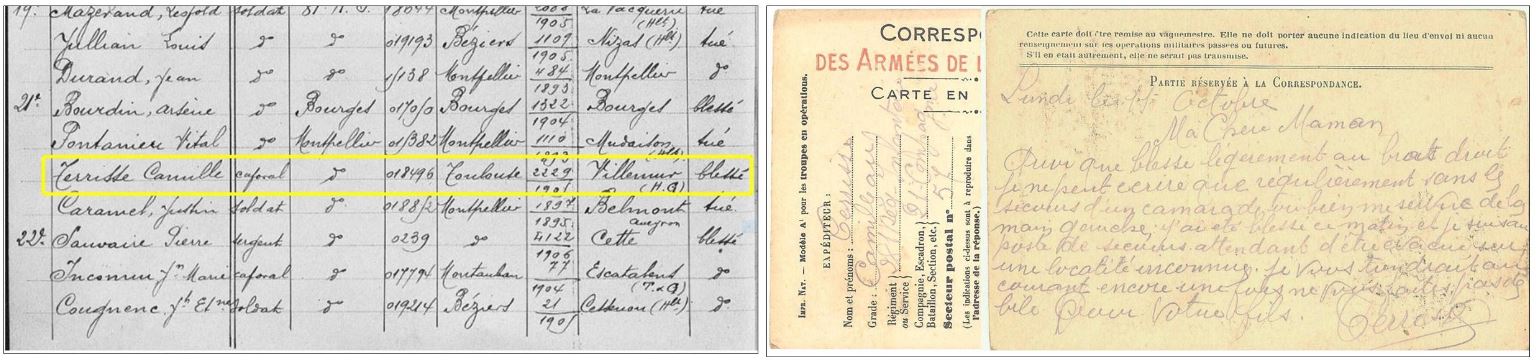 19. Mazerand, Léopold soldat 81 R. I. 18044 Montpellier 2000 La Vacquerie tué
1905 (Hlt)
Jullian Louis do do 019193 Béziers 1109 Nizas (Hlt) tué
1905
Durand, Jean do do 1/138 Montpellier 484 Montpellier do
1893
21e Bourdin, arsène do Bourges 0170/0 Bourges 1322 Bourges blessé
1904
Pontanier Vital do Montpellier 01382 Montpellier 110 Mudaison tué
Terrisse Camille caporal do 018496 Toulouse 2229 Villemur blessé
1901 (H.G)
Caramel, Justin soldat do 0188/2 Montpellier 1897 Belmont tué.
1895 aveyron
22e Sauvaire Pierre sergent do 0239 do 4122 Cette blessé
1906
Inconnu Jn Marie caporal do 017794 Montauban 77 Escatalens do
1904 (T.&G)
Cougnenc Jh Etne soldat do 019214 Béziers 21 Cessenon (Hlt) do
190
CORRESPO
DES ARMÉES DE L
CARTE EN
Imp. Nat. — Modèle A1 pour les troupes en opérations.
EXPÉDITEUR :
Nom et prénoms : Terrisse
Camille
Grade :
Régiment
ou Service
Compagnie, Escadron,
Bataillon, Section, etc.
Secteur postal n° 57
(Les indications ci-dessus sont à reproduire dans
l'adresse de la réponse.)
Cette carte doit être remise au vaguemestre. Elle ne doit porter aucune indication du lieu d'envoi ni aucun
renseignement sur les opérations militaires passées ou futures.
S'il en était autrement, elle ne serait pas transmise.
PARTIE RÉSERVÉE À LA CORRESPONDANCE.
Lundi Octobre
Ma Chère Maman
que blessé légèrement au bras droit
je ne peut écrire que régulièrement sans le
secours d'un camarade ou bien me servir de la
main gauche. j'ai été blessé ce matin et je suis au
poste de secours attendant d'être évacué sur
une localité inconnue. je vous tiendrait au
courant encore une fois ne vous faites pas de
bile votre fils. Terrisse